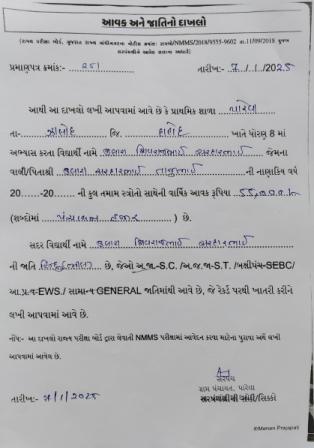 આવક અને જાતિનો દાખલો
(રાજ્ય પરીક્ષા બોર્ડ, ગુજરાત રાજ્ય ગાંધીનગરના નોટીસ ક્રમાંક: રાપબો/NMMS/2018/9555-9602 તા.11/09/2018 મુજબ
સરપંચશ્રીએ આપેલ દાખલા આધારે)
પ્રમાણપત્ર ક્રમાંક:- 251 તારીખ:- 7/1/2025
આથી આ દાખલો લખી આપવામાં આવે છે કે પ્રાથમિક શાળા પારેવા
તા- ઝાલોદ જિ. દાહોદ ખાતે ધોરણ 8 માં
અભ્યાસ કરતા વિદ્યાર્થી નામે જેમના
વાલી/પિતાશ્રી ની નાણાકિય વર્ષ
20......-20....... ની કુલ તમામ સ્ત્રોતો સાથેની વાર્ષિક આવક રૂપિયા 55,000/-
(શબ્દોમાં પંચાવન હજાર ) છે.
સદર વિદ્યાર્થી નામે
ની જાતિ છે, જેઓ અ.જા-S.C. /અ.જ.જા-S.T. /બક્ષીપંચ-SEBC/
આ.પ્ર.વ-EWS./ સામાન્ય GENERAL જાતિમાંથી આવે છે, જે રેકર્ડ પરથી ખાતરી કરીને
લખી આપવામાં આવે છે.
નોંધ:- આ દાખલો રાજ્ય પરીક્ષા બોર્ડ દ્વારા લેવાતી NMMS પરીક્ષામાં આવેદન કરવા માટેના પુરાવા અર્થે લખી
આપવામાં આવેલ છે.
સરપંચ
ગ્રામ પંચાયત, પારેવા
તારીખ:- 7/1/2025 સરપંચશ્રીની સહી/સિક્કો
©Meham Prajapati